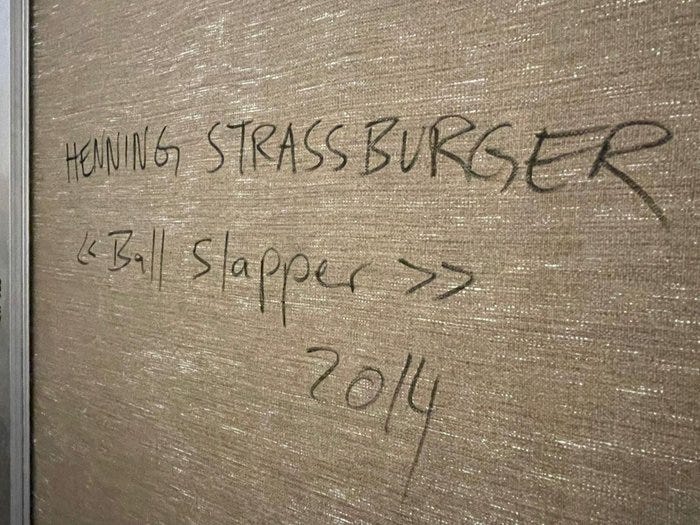 HENNING STRASSBURGER
<< Ball Slapper >>
2014